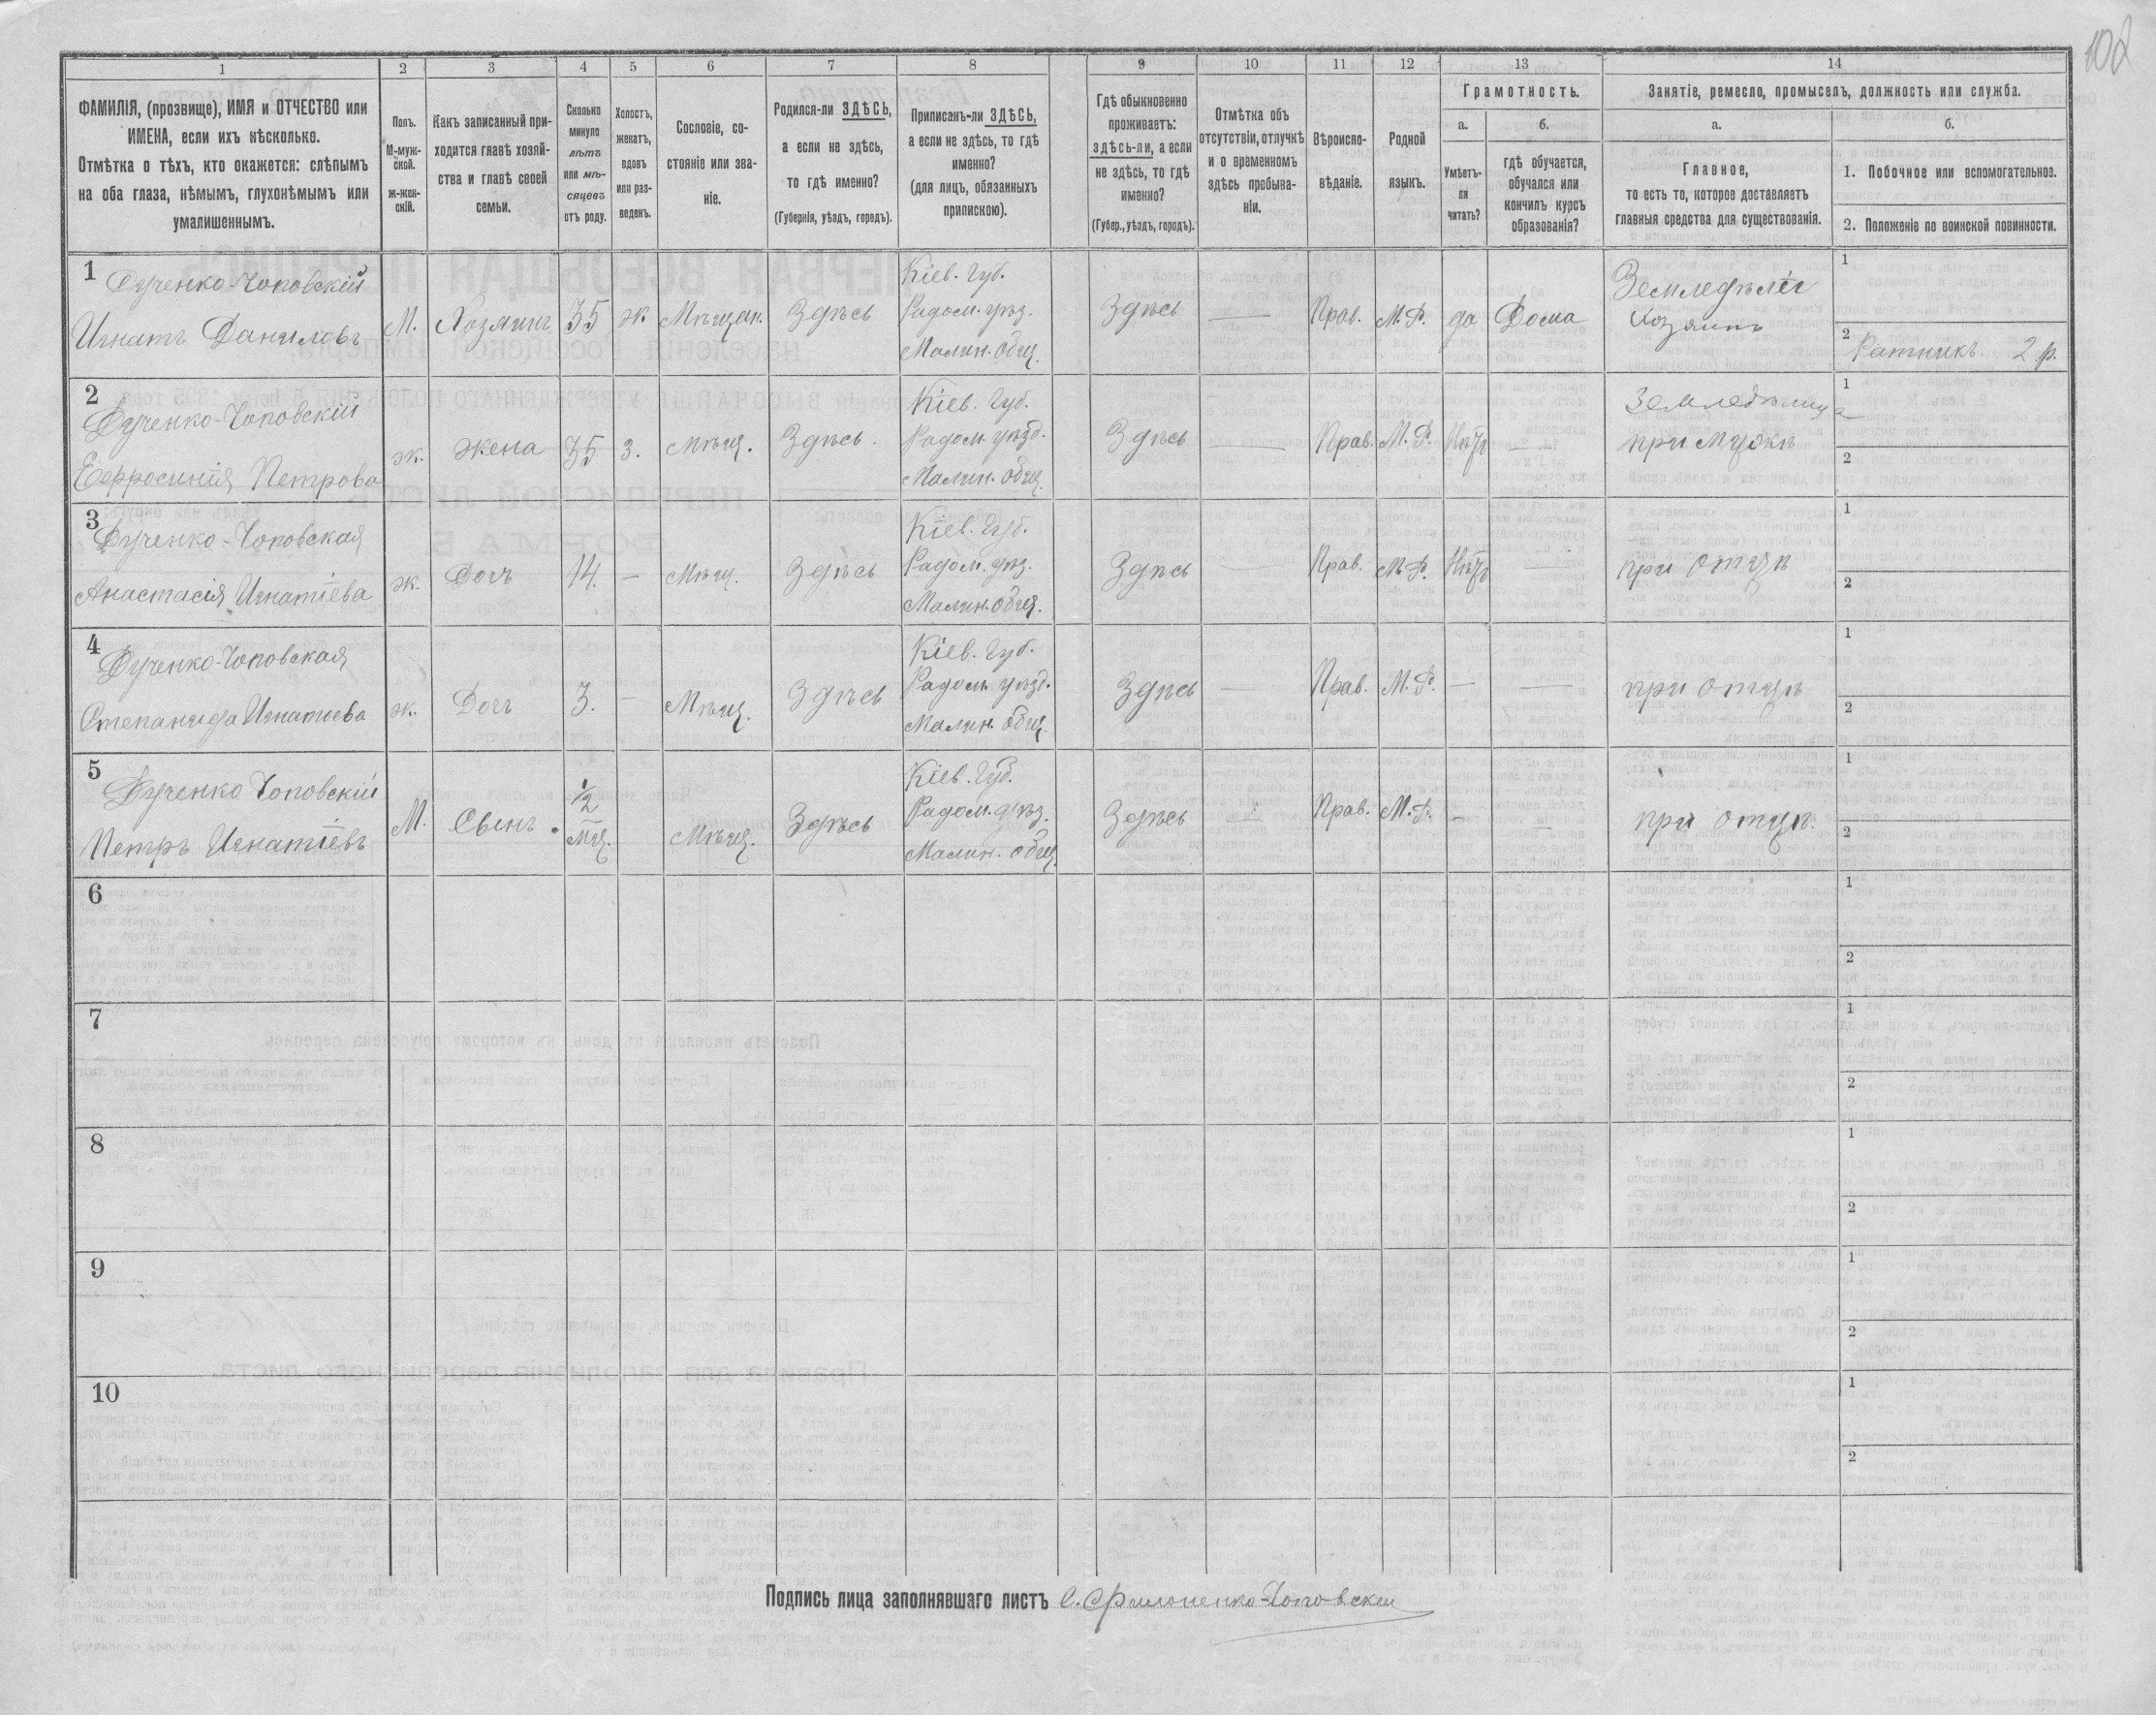 102
1 2 3 4 5 6 7 8 9 10 11 12 13 14
ФАМИЛІЯ, (прозвище), ИМЯ и ОТЧЕСТВО или
ИМЕНА, если ихъ нѣсколько.
Отмѣтка о тѣхъ, кто окажется: слѣпымъ
на оба глаза, нѣмымъ, глухонѣмымъ или
умалишеннымъ.
Полъ.
М-муж-
ской.
ж-жен-
скій.
Какъ записанный при-
ходится главѣ хозяй-
ства и главѣ своей
семьи.
Сколько
минуло
лѣтъ
или мѣ-
сяцевъ
отъ роду.
Холостъ,
женатъ,
вдовъ
или раз-
веденъ.
Сословіе, со-
стояніе или зва-
ніе.
Родился-ли ЗДѢСЬ,
а если не здѣсь,
то гдѣ именно?
(Губернія, уѣздъ, городъ).
Приписанъ-ли ЗДѢСЬ,
а если не здѣсь, то гдѣ
именно?
(для лицъ, обязанныхъ
припискою).
Гдѣ обыкновенно
проживаетъ:
здѣсь-ли, а если
не здѣсь, то гдѣ
именно?
(Губер., уѣздъ, городъ).
Отмѣтка объ
отсутствіи, отлучкѣ
и о временномъ
здѣсь пребыва-
ніи.
Вѣроиспо-
вѣданіе.
Родной
языкъ.
Грамотность.
а.
Умѣетъ-
ли
читать?
б.
гдѣ обучается,
обучался или
кончилъ курсъ
образованія?
Занятіе, ремесло, промыселъ, должность или служба.
а.
Главное,
то есть то, которое доставляетъ
главныя средства для существованія.
б.
1. Побочное или вспомогательное.
2. Положеніе по воинской повинности.
1
Дученко-Чоповскій
Игнатъ Даниловъ
М.
Хозяинъ
35
ж
Мѣщан.
Здѣсь
Кіев. Губ.
Радом. уѣз.
Малин. общ.
Здѣсь
—
Прав.
М.Р.
да
Дома
Земледѣліе
Хозяинъ
1
2
Ратникъ. 2 р.
2
Дученко-Чоповскій
Евфросинія Петрова
ж.
жена
35
з.
мѣщ.
Здѣсь.
Кіев. Губ.
Радом. уѣзд.
Малин. общ.
Здѣсь
—
Прав.
М.Р.
Нѣтъ
—
Земледѣлица
при мужѣ
1
2
3
Дученко-Чоповская
Анастасія Игнатіева
ж.
Дочъ
14.
—
Мѣщ.
Здѣсь
Кіев. Губ.
Радом. уѣз.
Малин. общ.
Здѣсь
—
Прав.
М.Р.
Нѣтъ
—
при отцѣ
1
2
4
Дученко-Чоповская
Степанида Игнатьева
ж.
Дочъ
3.
—
Мѣщ.
Здѣсь
Кіев. Губ.
Радом. уѣзд.
Малин. общ.
Здѣсь
—
Прав.
М.Р.
—
—
при отцѣ
1
2
5
Дученко Чоповскій
Петръ Игнатіевъ
М.
Сынъ.
1/2
мѣц.
Мѣщ.
Здѣсь
Кіев. Губ.
Радом. уѣз.
Малин. общ.
Здѣсь
—
Прав.
М.Р.
—
—
при отцѣ.
1
2
6
1
2
7
1
2
8
1
2
9
1
2
10
1
2
Подпись лица заполнявшаго листъ С. Филоненко-Чоповскій